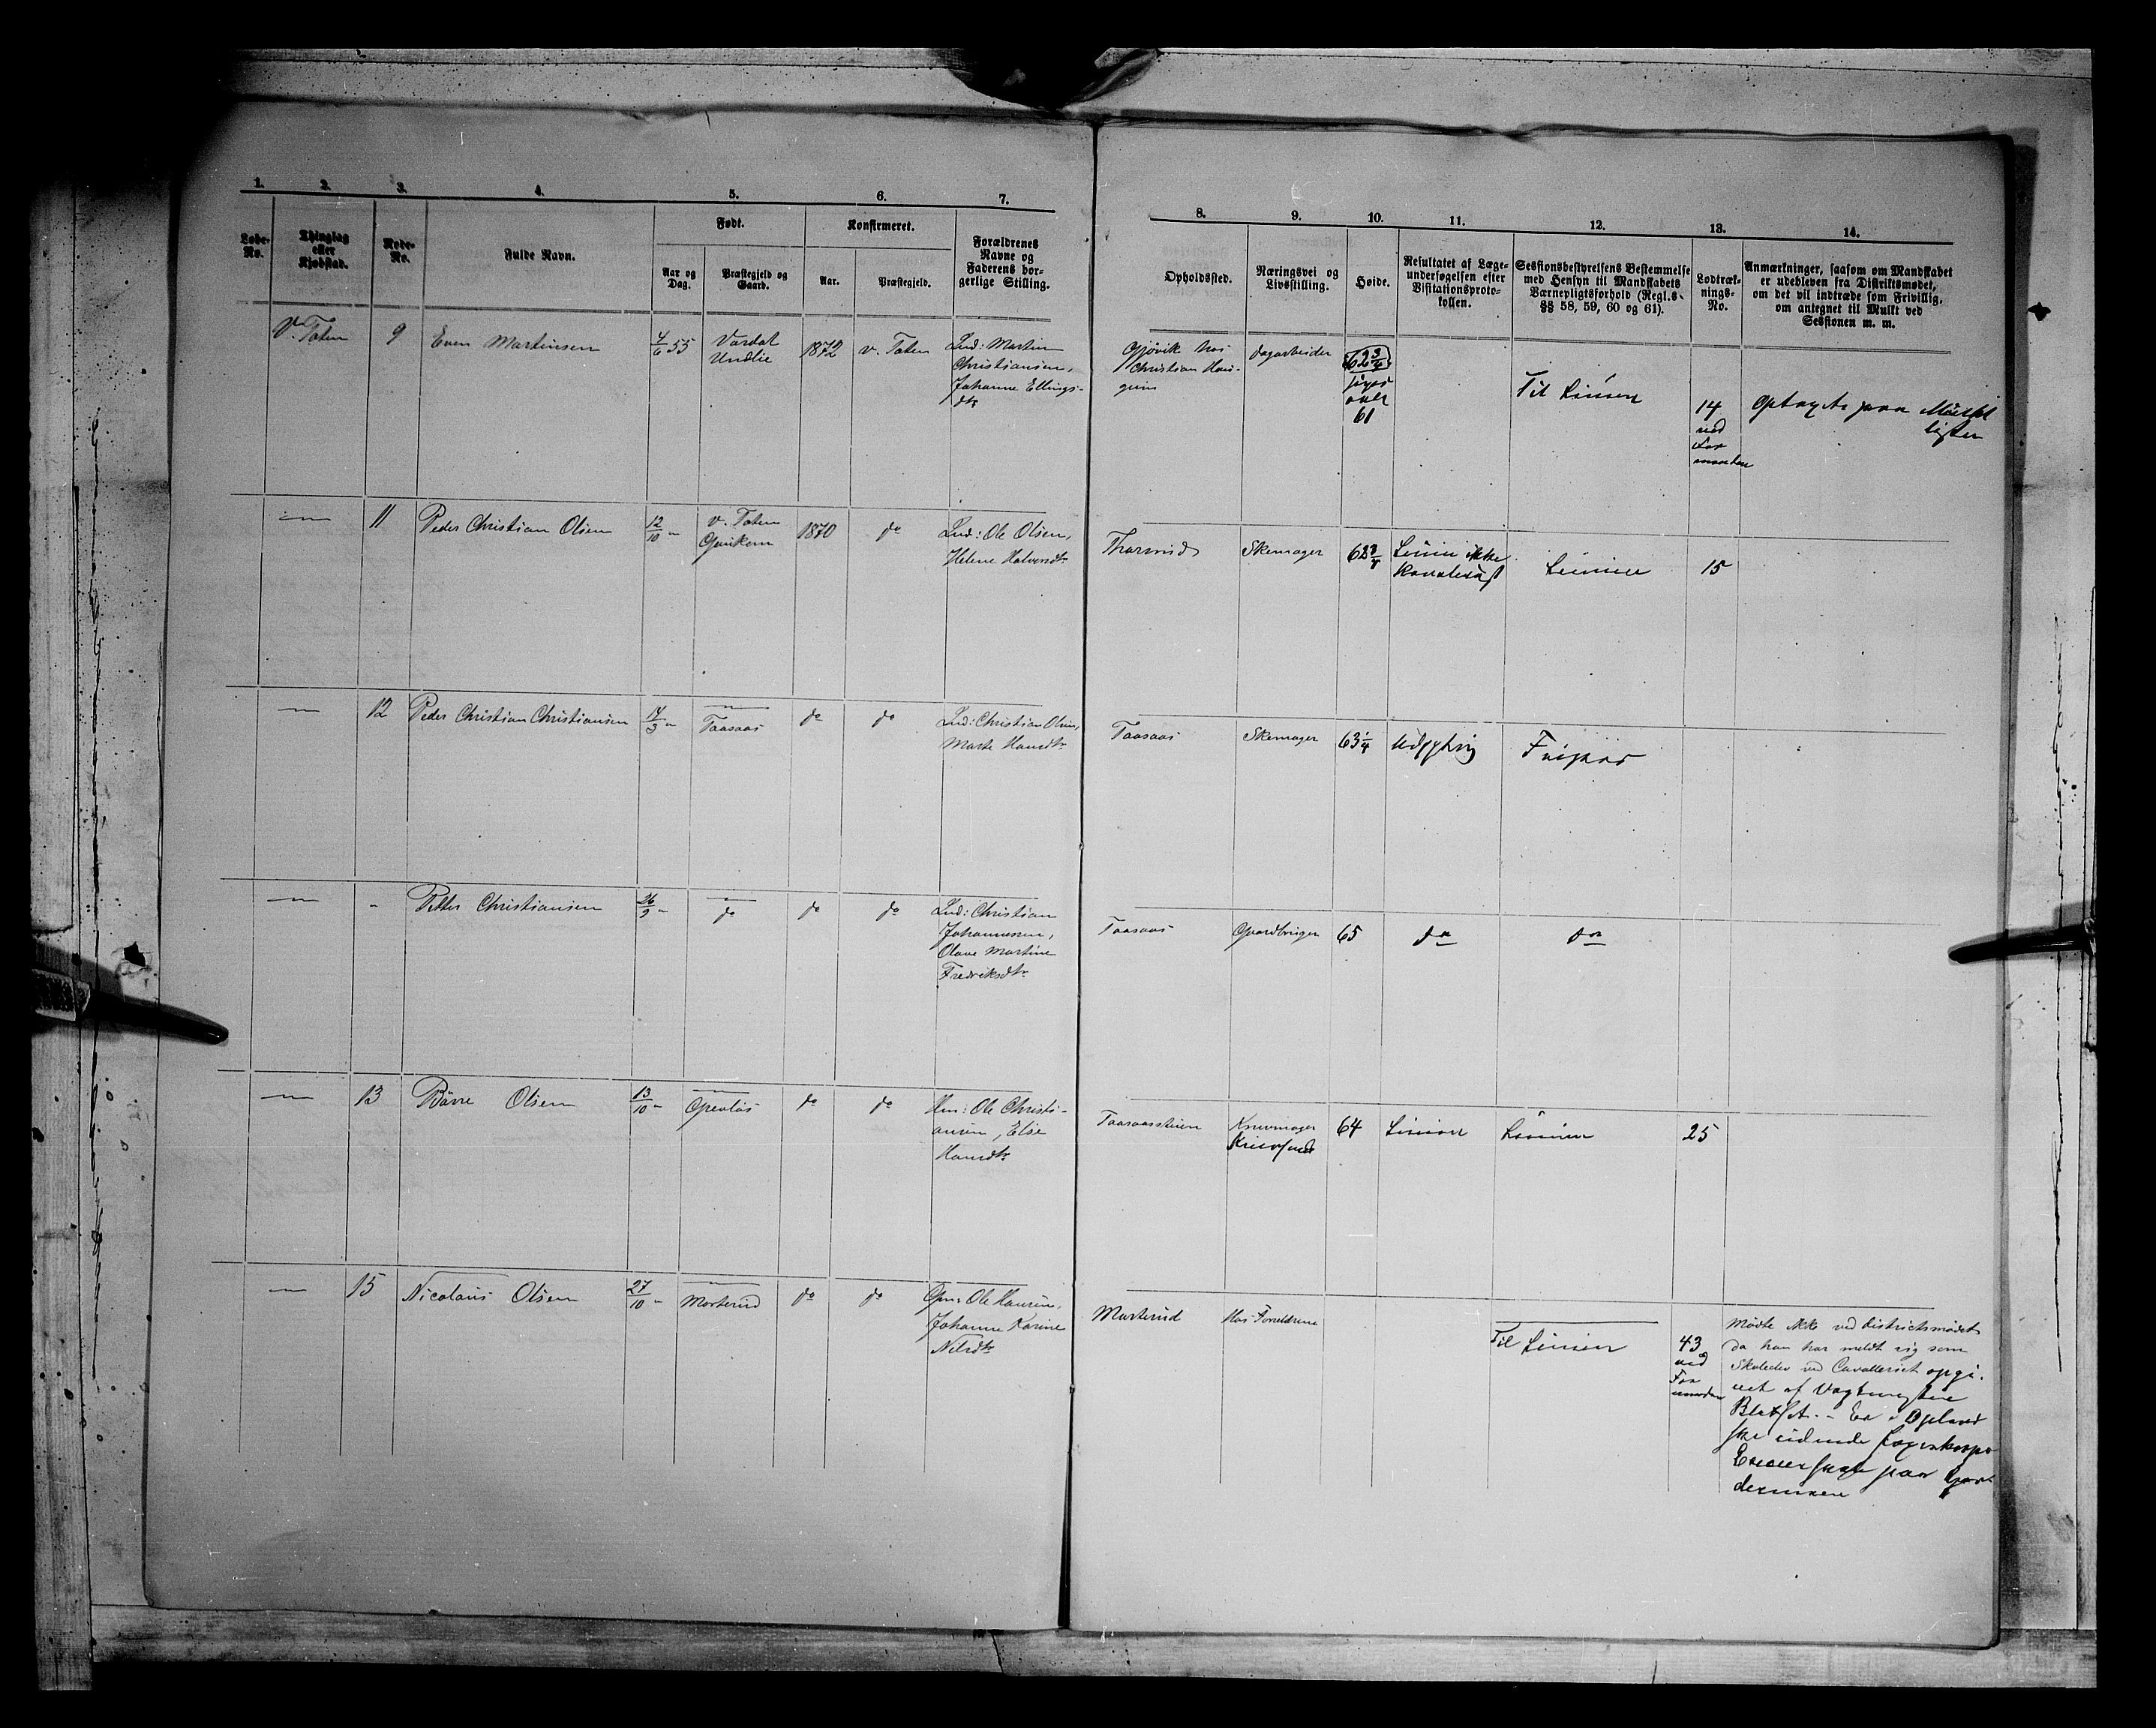 1. 2. 3. 4. 5. 6. 7.
Løbe-No.
Thinglag eller Kjøbstad.
Rode-No.
Fulde Navn.
Født.
Aar og Dag.
Præstegjeld og Gaard.
Konfirmeret.
Aar.
Præstegjeld.
Forældrenes Navne og Faderens borgerlige Stilling.
8. 9. 10. 11. 12. 13. 14.
Opholdssted.
Næringsvei og Livsstilling.
Høide.
Resultatet af Læge-
undersøgelsen efter
Visitationsproto-
kollen.
Sessionsbestyrelsens Bestemmelse
med Hensyn til Mandskabets
Værnepligtsforhold (Regl.s
§§ 58, 59, 60 og 61).
Lodtræk-
nings-
No.
Anmærkninger, saasom om Mandskabet
er udebleven fra Distriktsmødet,
om det vil indtræde som Frivillig,
om antegnet til Mulkt ved
Sessionen m. m.
V. Toten 9 Even Martinsen 4/6 55 Vardal 1872 v. Toten Ind: Martin
Undlie
Christiansen,
Johanne Ellings-
dtr
Gjøvik hos
Christian Hau-
gum
dagarbeider
62 3/4
over
61
Til Linien
14
ved
For
manden
Optaget paa
listen
11 Peder Christian Olsen 12/10 v. Toten 1870 do Ind: Ole Olsen,
Helene Halvorsdtr
Skomager 62 3/4 Linien ikke
Linien 15
12 Peder Christian Christiansen 17/3 Taasaas do do Ind: Christian Olsen,
Marte Hansdtr
Taasaas Skomager 63 1/4 Udygtig
Petter Christiansen 26/9 do do do Ind: Christian
Johannessen,
Olave Martine
Fredriksdtr
Taasaas Gaardbruger 65 do do
13 Børre Olsen 13/10 do do Hm: Ole Christi-
ansen, Else
Hansdtr
Taasaasstuen
64 Linien Linien 25
15 Nicolaus Olsen 27/10 Morterud do do Gm: Ole Hansen,
Johanne Karine
Nilsdtr
Morterud Hos Forældrene
Til Linien
43
ved
For
manden
Mødte ikke ved Districtsmødet
da han har meldt sig som
Skoleelev ved Cavalleriet opgi-
vet af Vagtmester